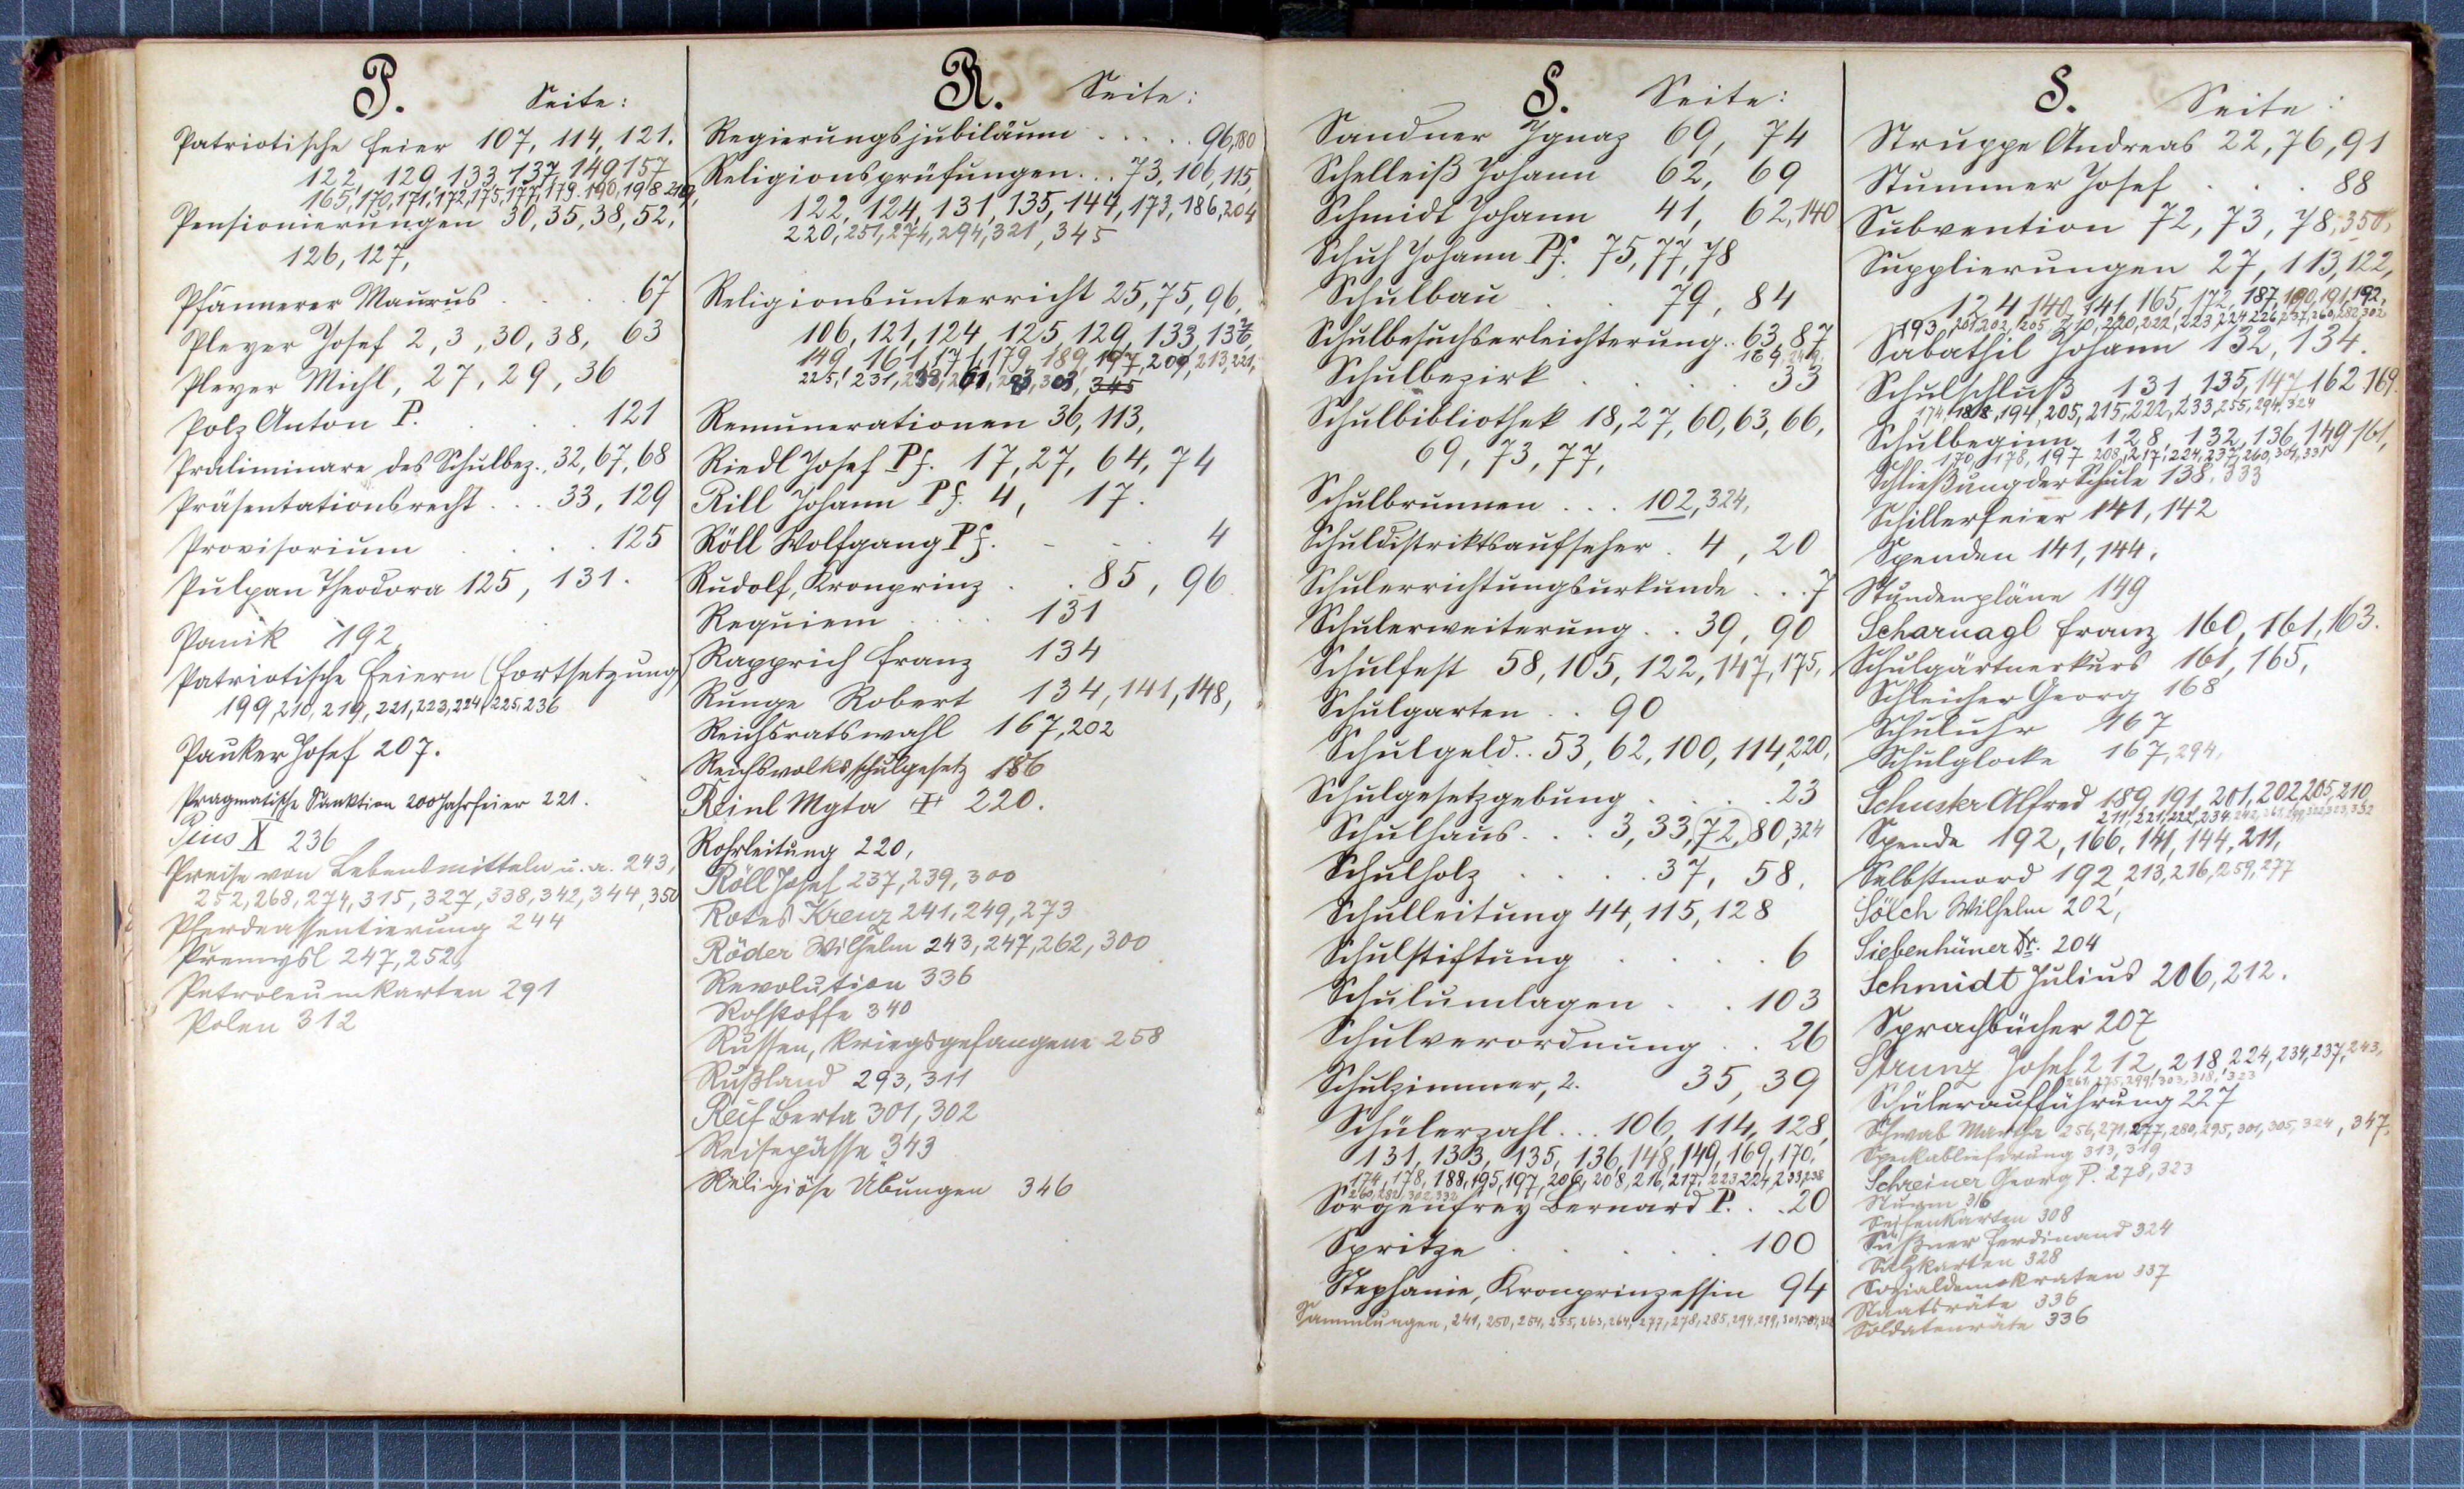 P.
Seite:
Patriotische Feier 107, 114, 121.
122, 129, 133, 137, 149, 157
165, 170, 171, 172, 175, 177, 179. 190, 198
Pensionierungen 30, 35, 38, 52,
126, 127,
Pfannerer Maurus . . . 67
Pleyer Josef 2, 3, 30, 38, 63
Pleyer Michl, 27, 29, 36
Polz Anton P. . . . 121
Präliminare des Schulbez. 32, 67, 68
Präsentationsrecht . . . 33, 129
Provisorium . . . . 125
Pulpan Theodora 125, 131.
Panik 192
Patriotische Feiern (Fortsetzung)
199, 210, 219, 221, 223, 224, 225, 236
Pauker Josef 207.
Pragmatische Sanktion 200 Jahrfeier 221.
Pius X 236
Preise von Lebensmitteln u. a. 243,
252, 268, 274, 315, 327, 338, 342, 344, 350
Pferdeassentierung 244
Przemysl 247, 252,
Petroleumkarten 291
Polen 312
R.
Seite:
Regierungsjubiläum . . . . . 96, 180
Religionsprüfungen . . . 73, 106, 115,
122, 124, 131, 135, 144, 173, 186, 204
220, 251, 274, 294, 321, 345
Religionsunterricht 25, 75, 96,
106, 121, 124, 125, 129, 133, 136,
149, 161, 171, 179, 189, 197, 209, 213, 221,
225, 231, 345
Remunerationen 36, 113,
Riedl Josef Pf. 17, 27, 64, 74
Rill Johann Pf. 4, 17.
Röll Wolfgang Pf. - - . 4
Rudolf, Kronprinz . . 85, 96
Requiem . . . . 131
Rapprich Franz 134
Runge Robert 134, 141, 148,
Reichsratswahl 167, 202
Reichsvolksschulgesetz 186
Reinl Mgta 220.
Rohrleitung 220,
Röll Josef 237, 239, 300
Rotes Kreuz 241, 249, 273
Röder Wilhelm 243, 247, 262, 300
Revolution 336
Rohstoffe 340
Russen, kriegsgefangene 258
Rußland 293, 311
Reif Berta 301, 302
Reisepässe 343
Religiöse Übungen 346
S.
Seite:
Sandner Ignaz 69, 74
Schelleiß Johann 62, 69
Schmidt Johann 41, 62, 140
Schuh Johann Pf. 75, 77, 78
Schulbau . . 79, 84
Schulbesuchserleichterung . . 63, 87
169,
Schulbezirk . . . . . 33
Schulbibliothek 18, 27, 60, 63, 66,
69, 73, 77,
Schulbrunnen . . . 102, 324,
Schuldistriktsaufseher . 4, 20
Schulerrichtungsurkunde . . . 7
Schulerweiterung . . 39, 90
Schulfest 58, 105, 122, 147, 175,
Schulgarten . . 90
Schulgeld . . 53, 62, 100, 114, 220,
Schulgesetzgebung . . . . 23
Schulhaus . . . 3, 33, 72, 80, 324
Schulholz . . . . . 37, 58.
Schulleitung 44, 115, 128
Schulstiftung . . . . 6
Schulumlagen . . 103
Schulverordnung . . 26
Schulzimmer, 2. 35, 39
Schülerzahl . . . 106, 114, 128,
131, 133, 135, 136, 148, 149, 169, 170,
174, 178, 188, 195, 197, 206, 208, 216, 217, 223, 224, 233, 238
260, 282, 302, 332
Sorgenfrey Bernard P. . . 20
Spritze . . . . . 100
Stephanie, Kronprinzessin 94
Sammlungen, 241, 250, 254, 255, 263, 264, 277, 278, 285, 294, 299, 301,
S.
Seite:
Struppe Andreas 22, 76, 91
Stummer Josef . . . 88
Subvention 72, 73, 78, 350,
Supplierungen 27, 113, 122,
124, 140, 141, 165, 172, 187, 190, 191, 192,
193, 201, 202, 205, 210, 220, 222, 223, 224, 226, 237, 260, 282, 302
Sabathil Johann 132, 134.
Schulschluß 131, 135, 147, 162, 169.
174, 188, 194, 205, 215, 222, 233, 255, 294, 324
Schulbeginn 128, 132, 136, 149, 161,
170, 178, 197, 208, 217, 224, 237, 260, 304, 331
Schließung der Schule 138, 333
Schillerfeier 141, 142
Spenden 141, 144,
Stundenpläne 149
Scharnagl Franz 160, 161, 163.
Schulgärtnerkurs 161, 165,
Schleicher Georg 168
Schuluhr 167
Schulglocke 167, 294,
Schuster Alfred 189, 191, 201, 202, 205, 210
211, 221, 222, 234,
Spende 192, 166, 141, 144, 211,
Selbstmord 192, 213, 216, 259, 277
Sölch Wilhelm 202,
Siebenhüner Dr. 204
Schmidt Julius 206, 212.
Sprachbücher 207
Strunz Josef 212, 218, 224, 234, 237, 243,
261, 275, 299, 303, 318, 323
Schüleraufführung 227
Schwab Martha 256, 271, 277, 280, 295, 301, 305, 324, 347,
Speckablieferung 313, 319
Schreiner Georg P. 278, 323
Sturm 316
Seifenkarten 308
Süßner Ferdinand 324
Salzkarten 328
Sozialdemokraten 337
Staatsräte 336
Soldatenräte 336